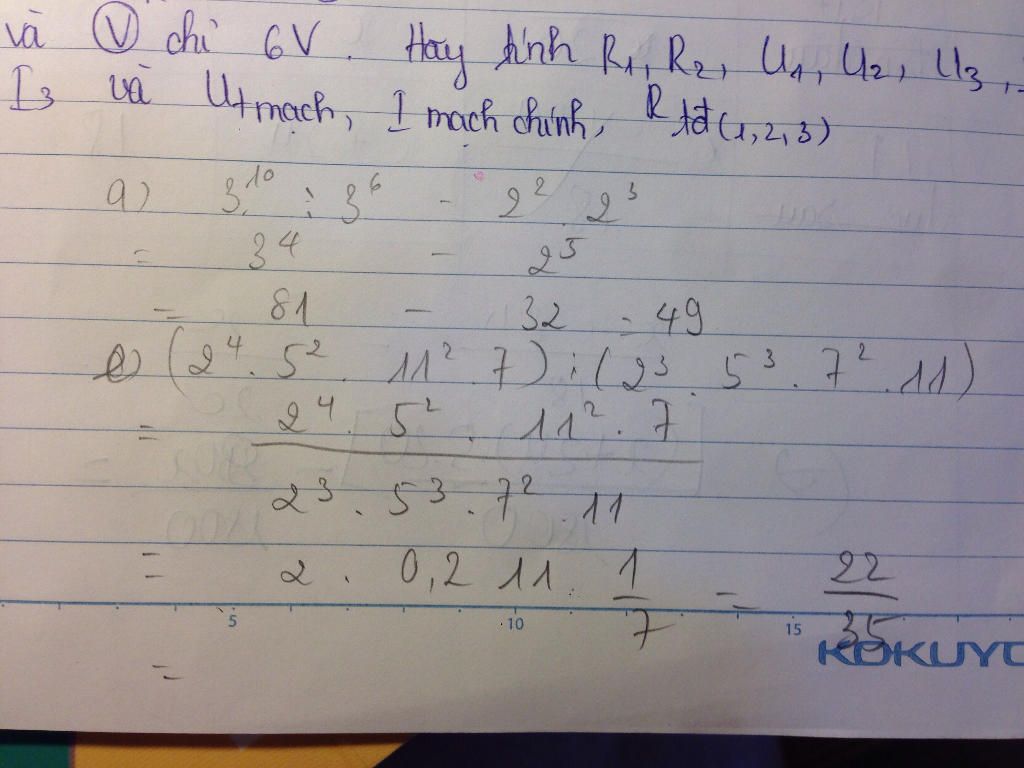 và Ⓥ chỉ 6V. Hãy tính R₁, R₂, U₁, U₂, U₃,
I₃ và U+mạch, I mạch chính, Rtđ(1,2,3)
a) 3¹⁰ : 3⁶ - 2² . 2³
= 3⁴ - 2⁵
= 81 - 32 = 49
e) (2⁴ . 5² . 11² . 7) : (2³ . 5³ . 7² . 11)
= 2⁴ . 5² . 11² . 7
2³ . 5³ . 7² . 11
= 2 . 0,2 11 . 1/7 = 22/35
5 10 15
KOKUYO
=